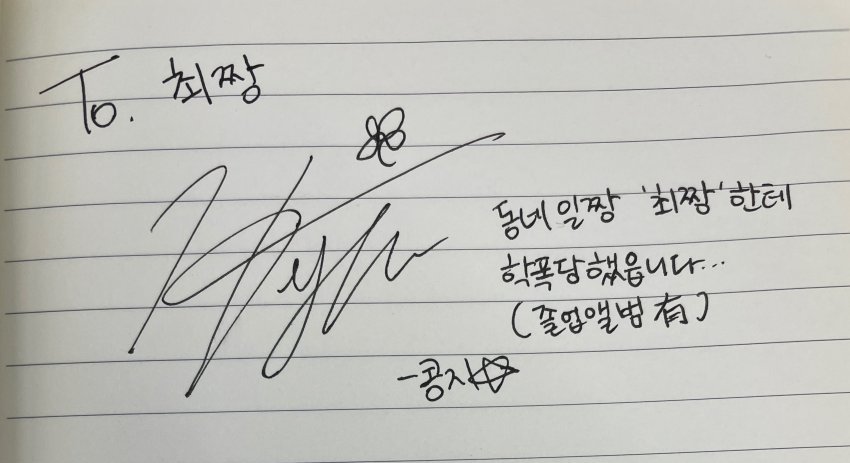 To. 최짱
동네 일짱 '최짱'한테
학폭당했읍니다...
(졸업앨범 有)
-콩지